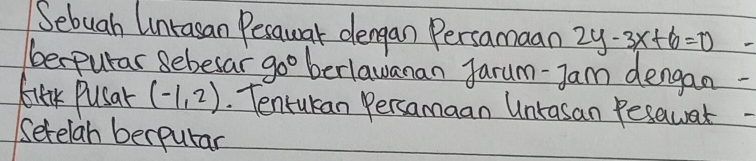 Sebuah lintasan Pesawat dengan Persamaan 2y-3x+6=0
berputar sebesar 90° berlawanan Jarum-Jam dengan
titik Pusat (-1,2). Tentukan Persamaan lintasan Pesawat
setelah berputar